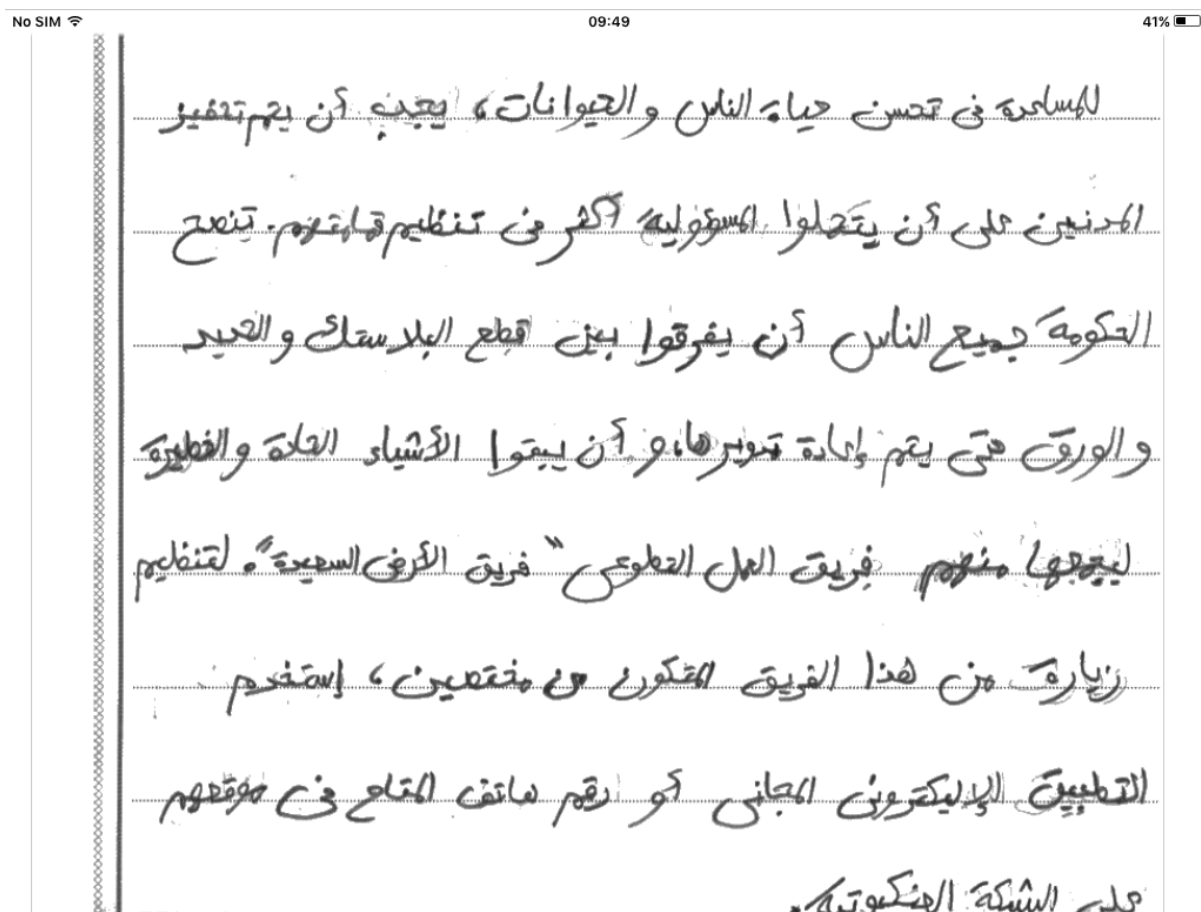 No SIM 09:49 41%
للمساعدة في تحسن حياة الناس والحيوانات، يجب أن يتم تحفيز
المدنين على أن يتحملوا المسؤولية أكثر في تنظيم قمامتهم. تنصح
الحكومة جميع الناس أن يفرقوا بين قطع البلاستك والحديد
والورق حتى يتم إعادة تدويرها، و أن يبقوا الأشياء الحادة والخطيرة
منهم فريق العمل التطوعي "فريق الأرض السعيدة". لتنظيم
زيارة من هذا الفريق المتكون من مختصين، إستخدم
التطبيق الإليكتروني المجاني أو رقم هاتف المتاح في موقعهم
على الشبكة العنكبوتية.